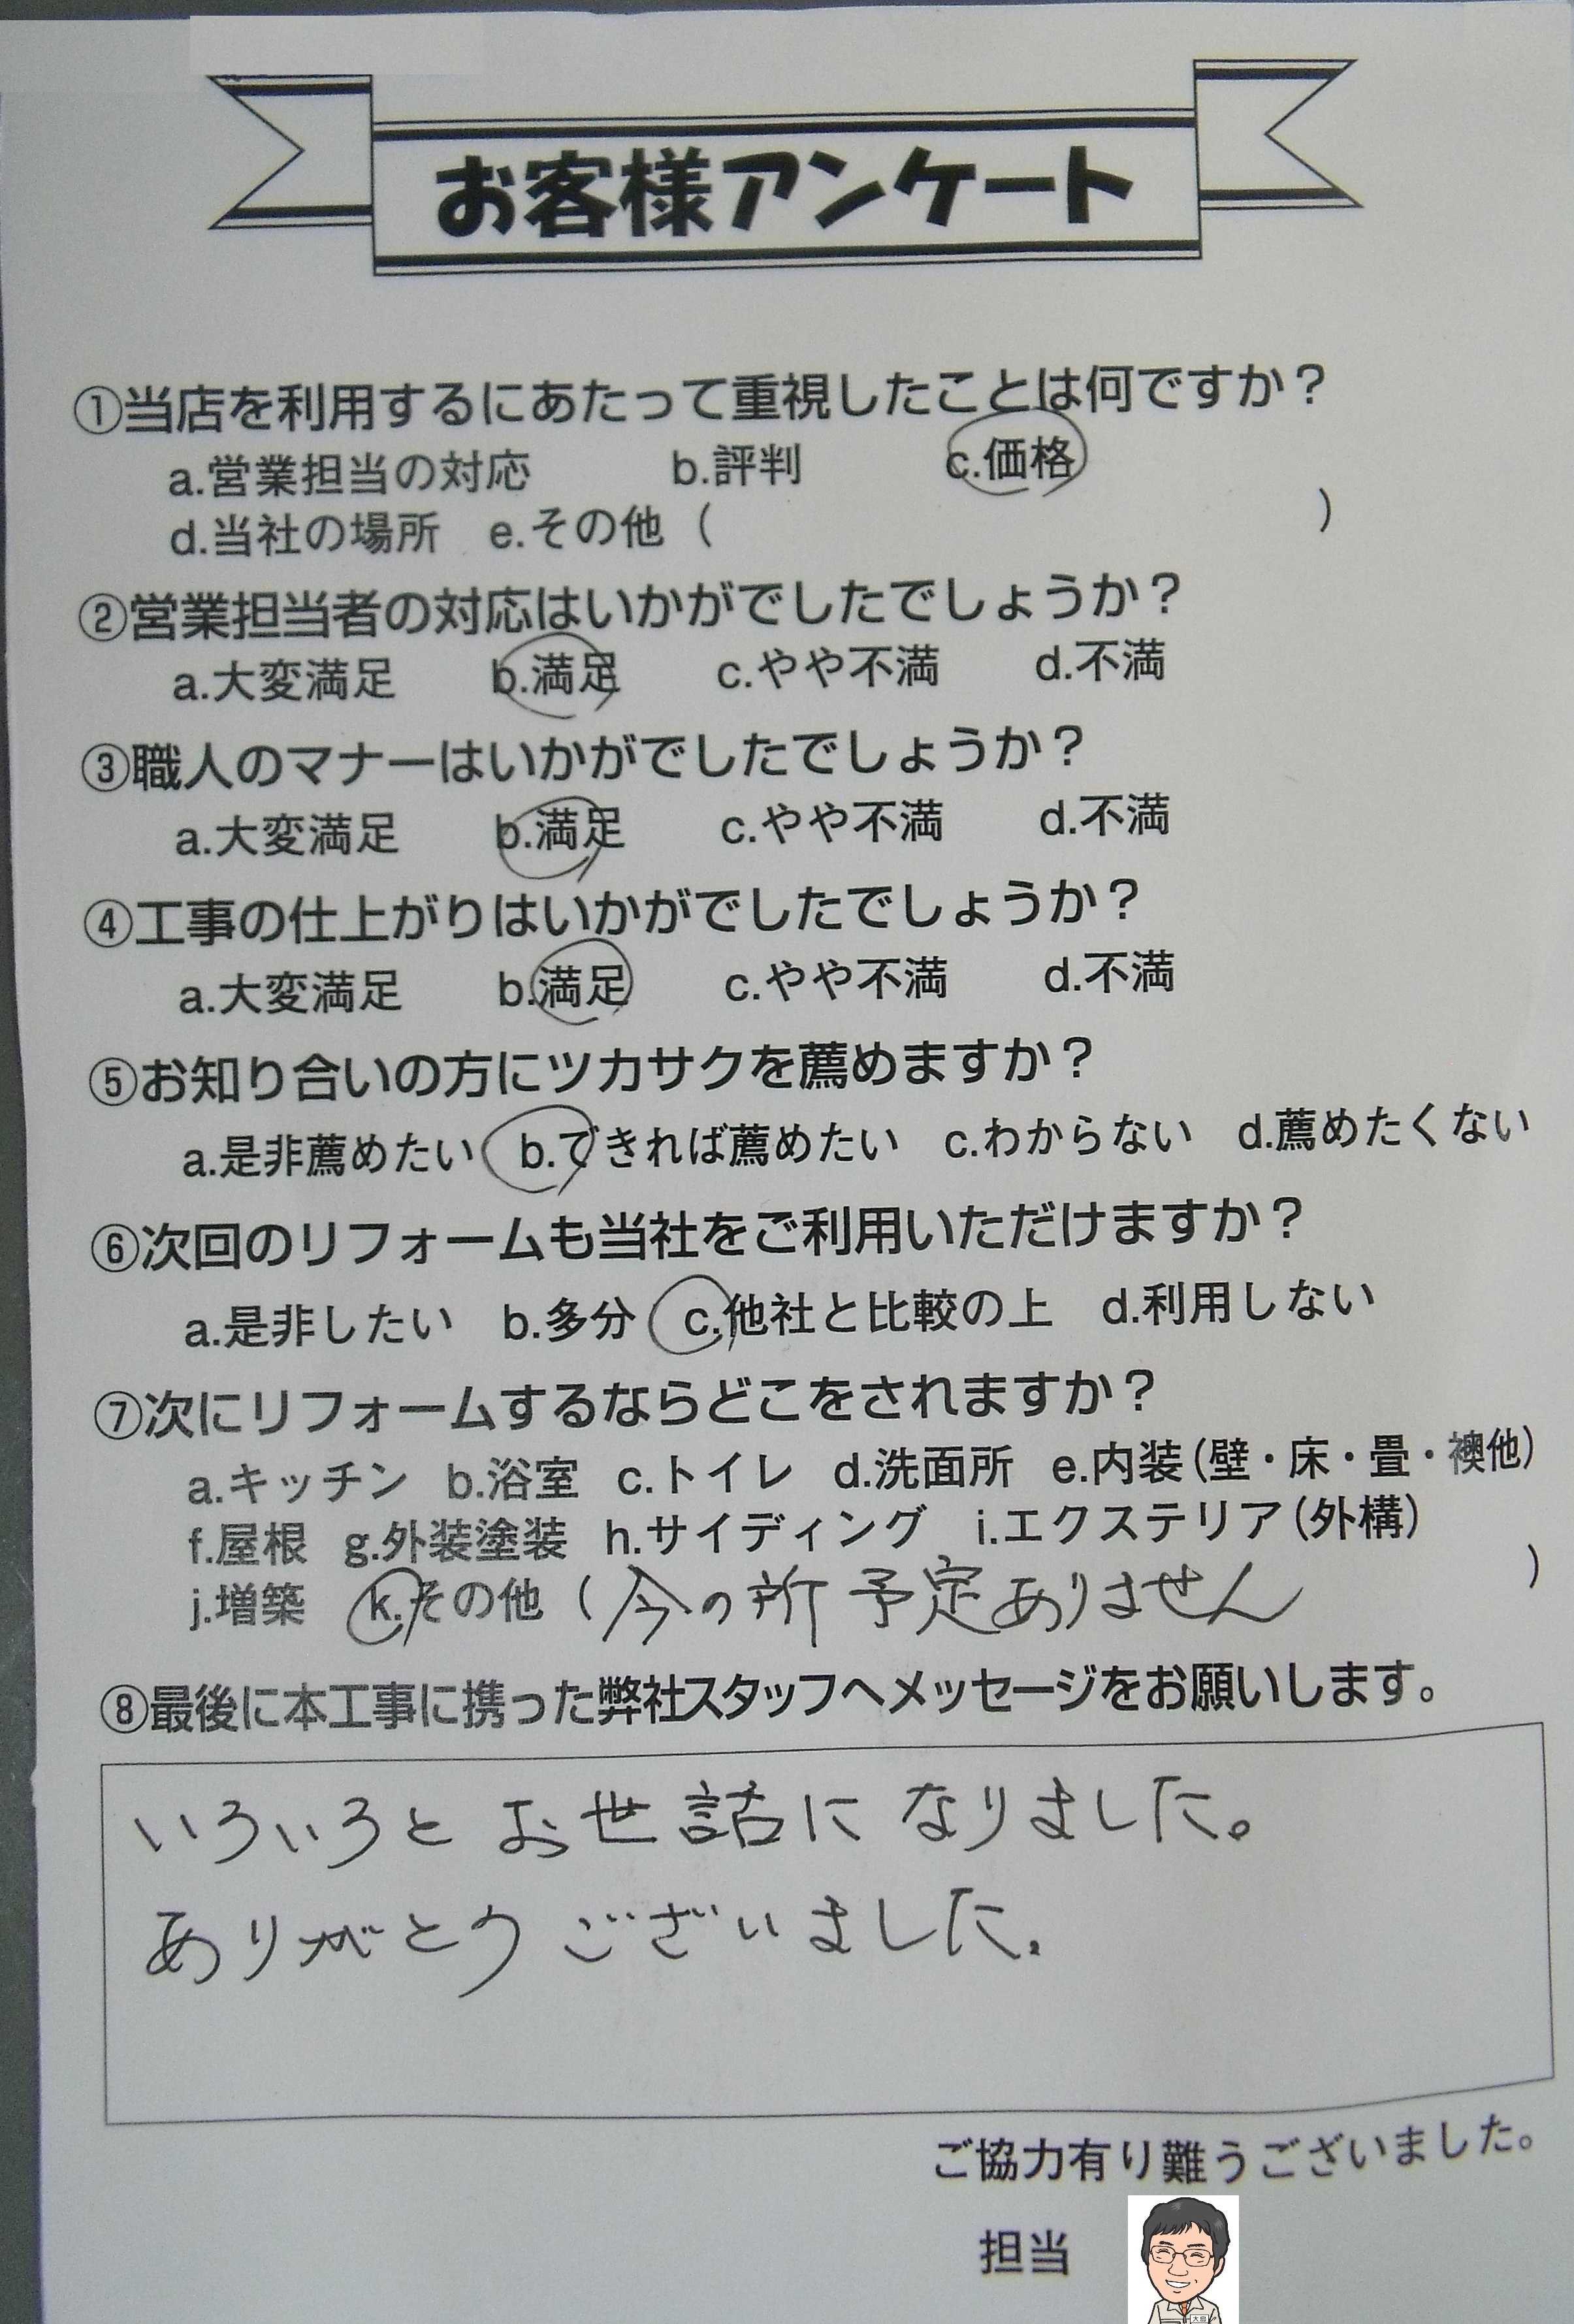 お客様アンケート
①当店を利用するにあたって重視したことは何ですか？
a.営業担当の対応 b.評判 c.価格
d.当社の場所 e.その他 ( )
②営業担当者の対応はいかがでしたでしょうか？
a.大変満足 b.満足 c.やや不満 d.不満
③職人のマナーはいかがでしたでしょうか？
a.大変満足 b.満足 c.やや不満 d.不満
④工事の仕上がりはいかがでしたでしょうか？
a.大変満足 b.満足 c.やや不満 d.不満
⑤お知り合いの方にツカサクを薦めますか？
a.是非薦めたい b.できれば薦めたい c.わからない d.薦めたくない
⑥次回のリフォームも当社をご利用いただけますか？
a.是非したい b.多分 c.他社と比較の上 d.利用しない
⑦次にリフォームするならどこをされますか？
a.キッチン b.浴室 c.トイレ d.洗面所 e.内装(壁・床・畳・襖他)
f.屋根 g.外装塗装 h.サイディング i.エクステリア(外構)
j.増築 k.その他 (今の所 予定ありません )
⑧最後に本工事に携った弊社スタッフへメッセージをお願いします。
いろいろと お世話に なりました。
ありがとう ございました。
ご協力有り難うございました。
担当